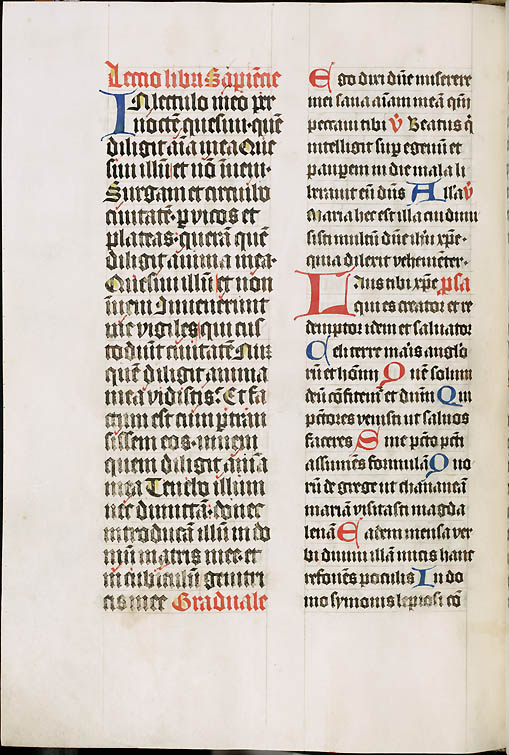 Lectio libri Sapiẽcie
IN lectulo meo per
noctẽ quesiui · quẽ
diligit aĩa mea Que
siui illũ et nõ inueni ·
Surgam et circuibo
ciuitatẽ · p vicos et
plateas · querã quẽ
diligit anima mea ·
Quesiui illũ et non
inueni Inuenerũnt
me vigiles qui cus
todiũt ciuitatẽ Nũ
quẽ diligit anima
mea vidistis : Et fa
ctum est cum ptran
sissem eos · inueni
quem diligit aĩa
mea Tenebo illum
nec dimittã · donec
introducã illũ in do
mũ matris mee · et
in cubiculũ genitri
cis mee Graduale
Ego dixi dñe miserere
mei sana aĩam meã qm̃
peccaui tibi v̾ Beatus q̃
intelligit sup egenũ et
pauperem in die mala li
berauit eũ dñs Alla v̾
Maria hec est illa cui dimi
sisti multũ dñe ihũ xp̃e ·
quia dilexit vehemẽter ·
Laus tibi xp̃e psa
qui es creator et re
demptor idem et saluator
Celi terre maris anglo
rũ et hom̃m Quẽ solum
deũ cõfitemur et dũm Qui
pctores venisti ut saluos
faceres Sine pcto pcti
assumẽs formulã Quo
rũ de grege ut chananeã
mariã visitasti magda
lenã Eadem mensa ver
bi diuini illã micis hanc
refouẽs poculis In do
mo symonis leprosi cõ